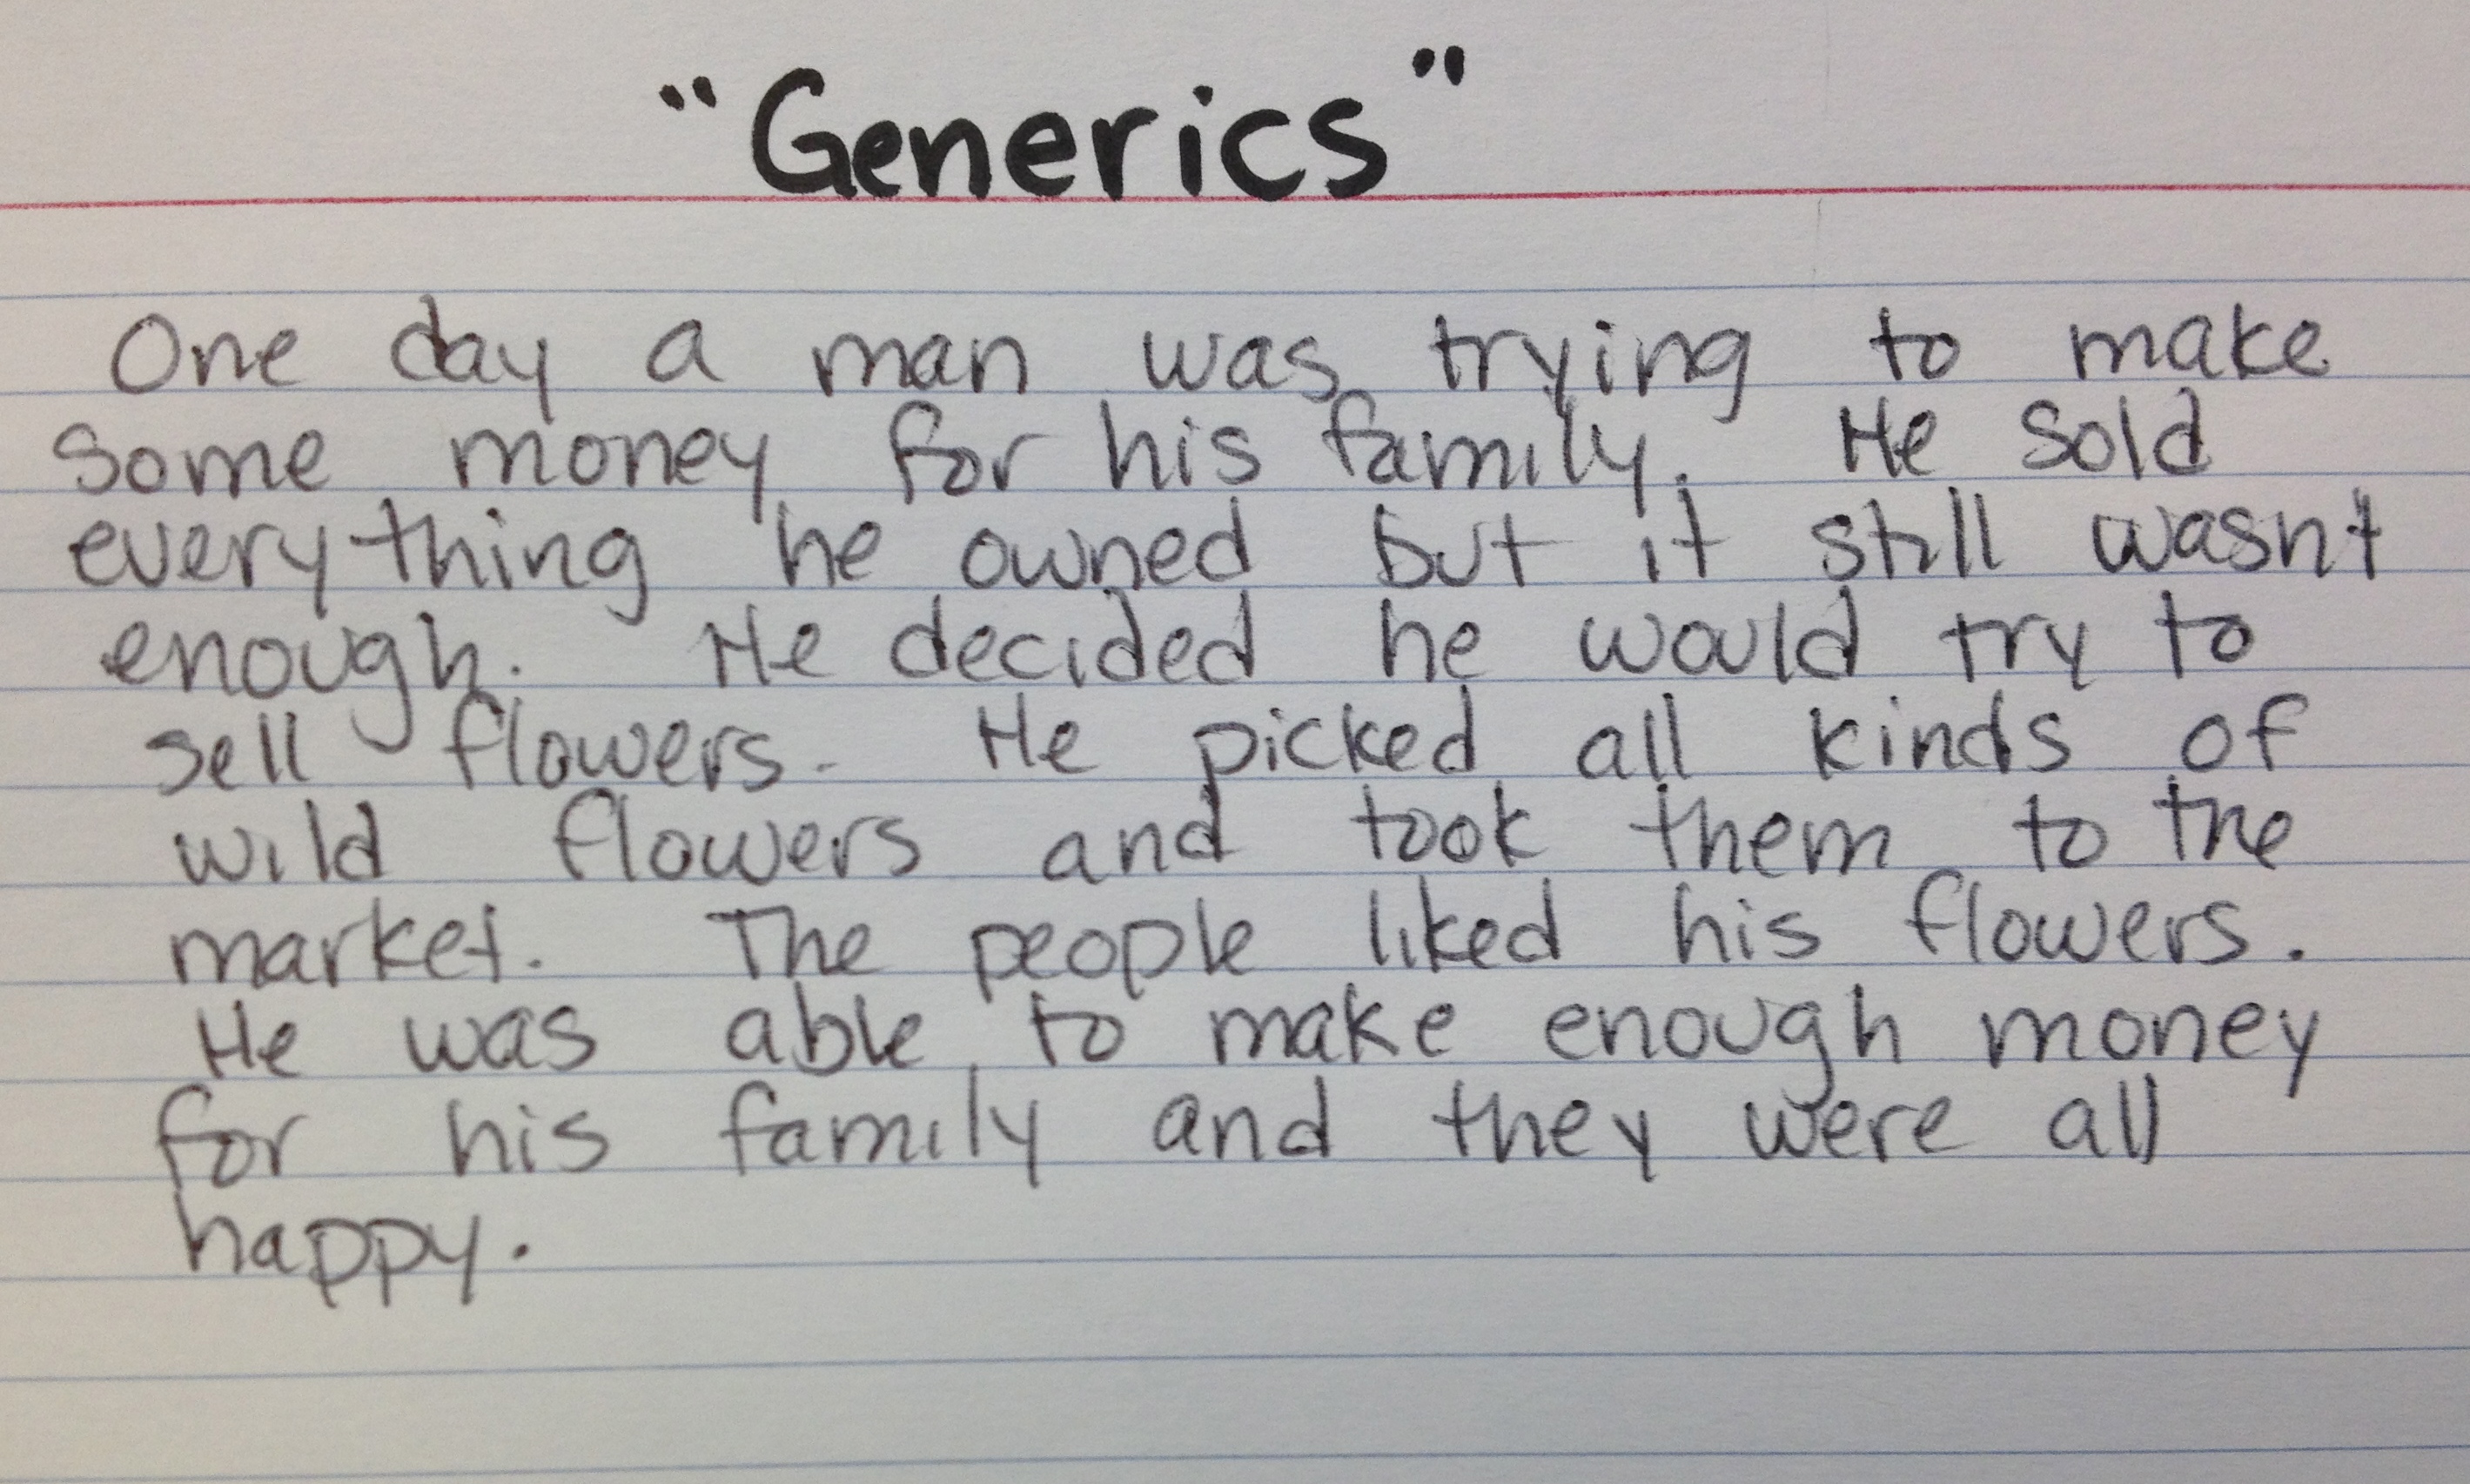 "Generics"
One day a man was trying to make
some money for his family. He sold
everything he owned but it still wasnt
enough. He decided he would try to
sell flowers. He picked all kinds of
wild flowers and took them to the
market. The people liked his flowers.
He was able to make enough money
for his family and they were all
happy.